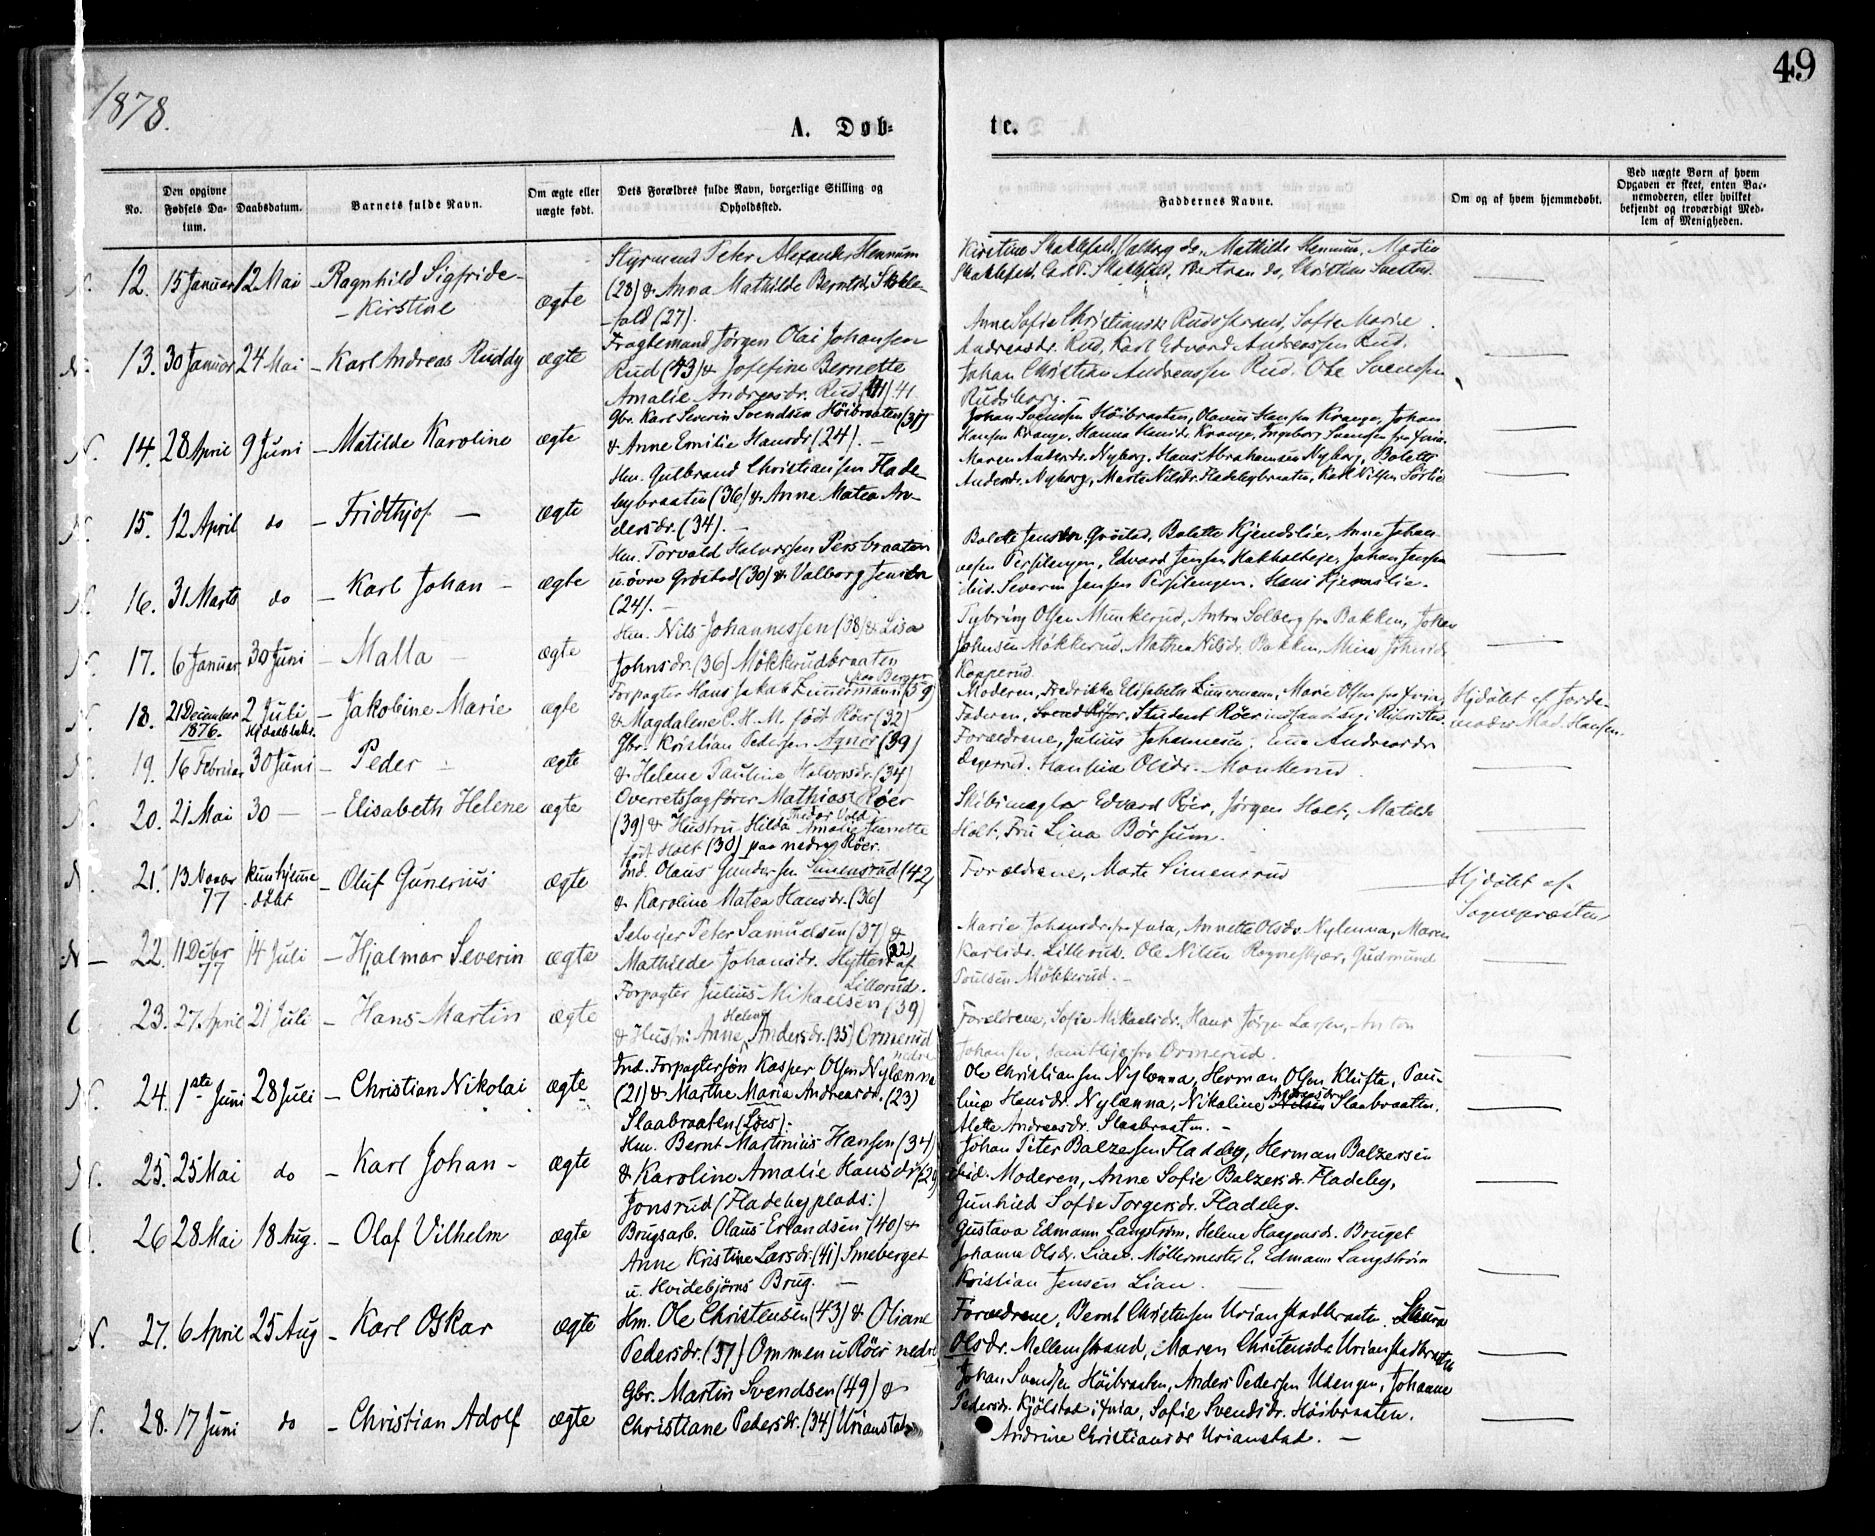 49
1878.
A. Døb-
te.
No.
Den opgivne Fødsels Da-tum.
Daabsdatum.
Barnets fulde Navn.
Om ægte eller uægte født.
Dets Forældres fulde Navn, borgerlige Stilling og Opholdssted.
Faddernes Navne.
Om og af hvem hjemmedøbt.
Ved uægte Børn af hvem Opgaven er skeet, enten Bar-nemoderen, eller hvilket bekjendt og troværdigt Med-lem af Menigheden.
N. 12. 15 Januar 12 Mai - Ragnhild Sigfride - Kirstine ægte
Styrmand Peter Alexander Hennum
(28) & Anna Mathilde Berntsdr Skakle-
fald (27).
Kirstine Skaklefald, Valborg do, Mathilde Hennum, Martin
Skaklefald,
13. 30 Januar 24 Mai - Karl Andreas Ruddy ægte
Fragtemand Jørgen Olai Johansen
Rud (43) & Josefine Bernette
Amalie Andreasdr. Rud (41) 41
Anne Sofie Christiansdr Rudsstrand, Sofie Marie
Andreasdr. Rud, Karl Edvard Andreassen Rud.
Johan Christian Andreassen Rud. Ole Svendsen
Rudsborg. -
N. 14. 28 April 9 Juni - Matilde Karoline ægte
Gbr. Karl Severin Svendsen Høibraaten (31)
& Anne Emilie Hansdr (24). -
Johan Svensen Høibraaten, Olavus Hansen Krange, Johan
Hansen Krange, Hanna Hansdr. Krange, Ingeborg Svensen fra Xnia.
N. 15. 12 April do - Fridthjof - ægte
Hm. Gulbrand Christiansen Flade-
bybraaten (36) & Anne Matea An-
dersdr. (34). -
Maren Andersdr. Nyborg, Hans Abrahamsen Nyborg, Bolette
Andersdr. Nyborg, Marte Nilsdr. Fladebybraaten, Karl Nilsen Sørlie
N. 16. 31 Marts do - Karl Johan - ægte
Hm. Torvald Halvorsen Persbraaten
u. øvre Grøstad (30) & Valborg Jensdr
(24). -
Bolette Jensdr. Grøstad, Bolette Kjendslie, Anne Johan-
nesen Persilengen, Edvard Jensen Hakkelberje, Johan Jensen
ibid. Severin Jensen Persilengen. Hans Kjenslie.
N. 17. 6 Januar 30 Juni - Malla - ægte
Hm. Nils Johannessen (38) & Lisa
Johnsdr. (36) Møkkerudbraaten
Tybring Olsen Munkerud, Anton Solberg fra Bakken, Johan
Johnsen Møkkerud, Mathea Nilsdr. Bakken, Mina Johnsdr
Kopperud
N. 18. 21 December 1876. 2 Juli - Jakobine Marie ægte
paa Berger
Forpagter Hans Jakob Zimmermann (39)
& Magdalene C. H. M. født Røer (32)
Moderen, Fredrikke Elisabeth Zimmermann, Marie Olsen fra Xnia,
Faderen, Svend Røer, Student Røer
Hjdøbt af Jorde-
moder Mad. Hansen.
N. 19. 16 Februar 30 Juni - Peder - ægte
Gbr. Kristian Pedersen Agnor (39)
& Helene Pauline Halvorsdr. (34)
Forældrene, Julius Johannesen, Andreasdr
Degerud. Olsdr. Munkerud.
N. 20. 21 Mai 30 - - Elisabeth Helene ægte
Overretssagfører Mathias Røer
(39) & Hustru Hilda Amalie Jeanette
født Holt (30) paa nedre Røer.
Skibsmægler Edvard Røer, Jørgen Holt, Matilde
Holt, Fru Lina Børsum.
N. 21. 13 Novbr 77 Kun hjemme-døbt - Oluf Gunerius ægte
Ind. Olaus Gundersen Simensrud (42)
& Karoline Matea Hansdr. (36)
Forældrene, Marte Simensrud
Hjdøbt af
Sognepræsten
N - 22. 11 Decbr 77 14 Juli - Hjalmar Severin ægte
Selveier Peter Samuelsen (37) &
Mathilde Johansdr. Hytten (32) af
Lillerud.
Marie Johansdr. fra Xnia, Annette Olsdr Nylænna, Maren
Karlsdr. Lillerud. Ole Nilsen Rogneskjær, Gudmund
Poulsen Møkkerud. -
23. 27 April 21 Juli - Hans Martin ægte
Forpagter Julius Mikaelsen (39)
& Hustru Anne Helene Andersdr. (35) Ormerud
nedre
Forældrene, Sofie Mikaelsdr, Hans Jørgen Larsen, Anton
Johansen, samtlige fra Ormerud.
N. 24. 1ste Juni 28 Juli - Christian Nikolai ægte
Ind. Forpagtersøn Kasper Olsen Nylænna
(21) & Marthe Maria Andreasdr. (23)
Slaabraaten (Løes).
Ole Christiansen Nylænna, Herman Olsen Klufta, Pau-
line Hansdr. Nylænna, Nikoline Andreasdr Slaabraaten,
Alette Andreasdr. Slaabraaten. -
N. 25. 25 Mai do - Karl Johan - ægte
Hm. Bernt Martinius Hansen (34)
& Karoline Amalie Hansdr (29)
Jonsrud (Fladebyplads:)
Johan Peter Balzersen Fladeby, Herman Balzersen
ibid. Moderen, Anne Sofie Balzersdr. Fladeby,
Gunhild Sofie Torgersdr. Fladeby.
26 28 Mai 18 Aug. - Olaf Vilhelm ægte
Brugsarb. Olaus Erlandsen (40) &
Anne Kristine Larsdr. (41) Smeberget
u. Hvidebjørns Brug. -
Gustava Edmann Langstrøm, Helene Haagensdr. Bruget
Johanna Olsdr. Lian. Møllermester E. Edmann Langstrøm
Kristian Jensen Lian. -
N. 27. 6 April 25 Aug - Karl Oskar ægte
Hm. Ole Christensen (43) & Oliane
Pedersdr. (37) Ommen u Røer nedre
Forældrene, Bernt Christensen Urianstadbraaten. Laura
Olsdr. Mellemstrand, Maren Christensdr Urianstadbraaten
N. 28. 17 Juni do - Christian Adolf ægte
Gbr. Martin Svendsen (49) &
Christiane Pedersdr. (34) Urianstad
Johan Svensen Høibraaten, Anders Pedersen Udengen, Johanne
Pedersdr. Kjølstad i Xnia, Sofie Svendsdr. Høibraaten.
Andrine Christiansdr Urianstad. -